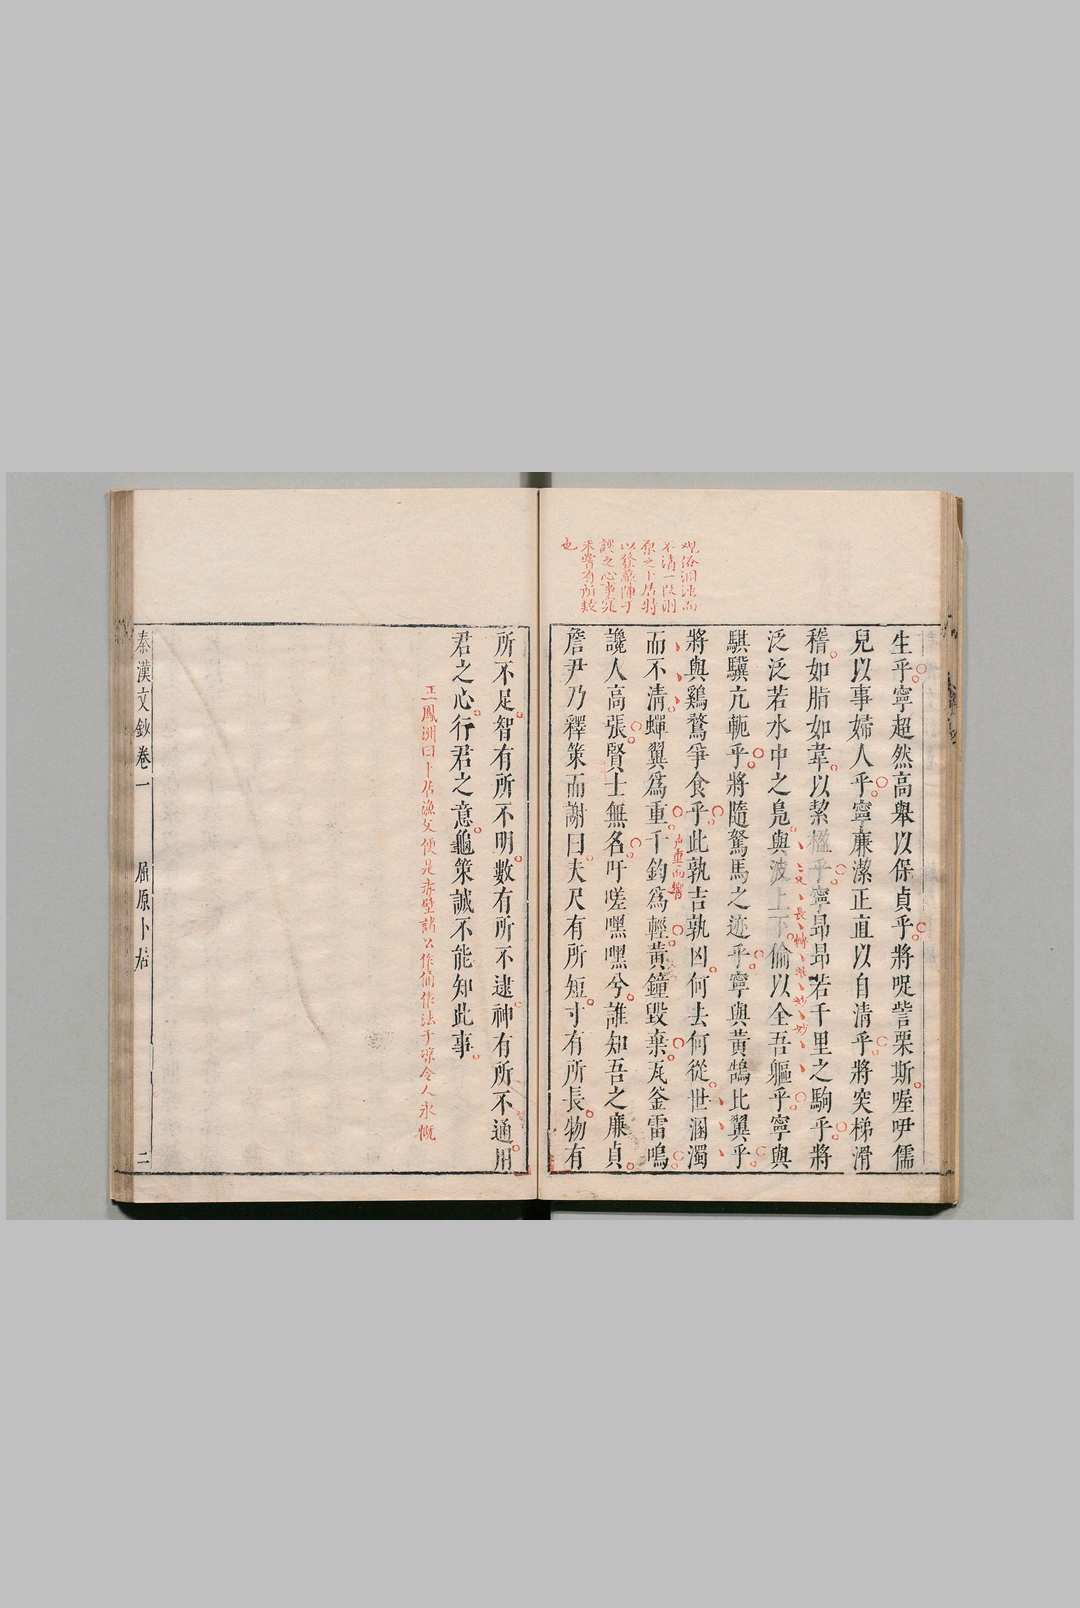 觀俗溷濁而
不清一段則
原之卜居特
以發
之心事
未嘗有所疑
也
生乎寧超然高舉以保貞乎將哫訾栗斯喔咿儒
兒以事婦人乎寧廉潔正直以自清乎將突梯滑
稽如脂如韋以絜楹乎寧昂昂若千里之駒乎將
泛泛若水中之鳧與波上下偷以全吾軀乎寧與
騏驥亢軛乎將隨駑馬之迹乎寧與黃鵠比翼乎
將與鷄鶩爭食乎此孰吉孰凶何去何從世溷濁
而不清蟬翼爲重千鈞爲輕黃鐘毀棄瓦釜雷鳴
讒人高張賢士無名吁嗟嘿嘿兮誰知吾之廉貞
詹尹乃釋策而謝曰夫尺有所短寸有所長物有
所不足智有所不明數有所不逮神有所不通用
君之心行君之意龜策誠不能知此事
王鳳洲曰卜居漁父便是赤壁諸公作俑作法于涼令人永慨
秦漢文鈔卷一 屈原卜居 二